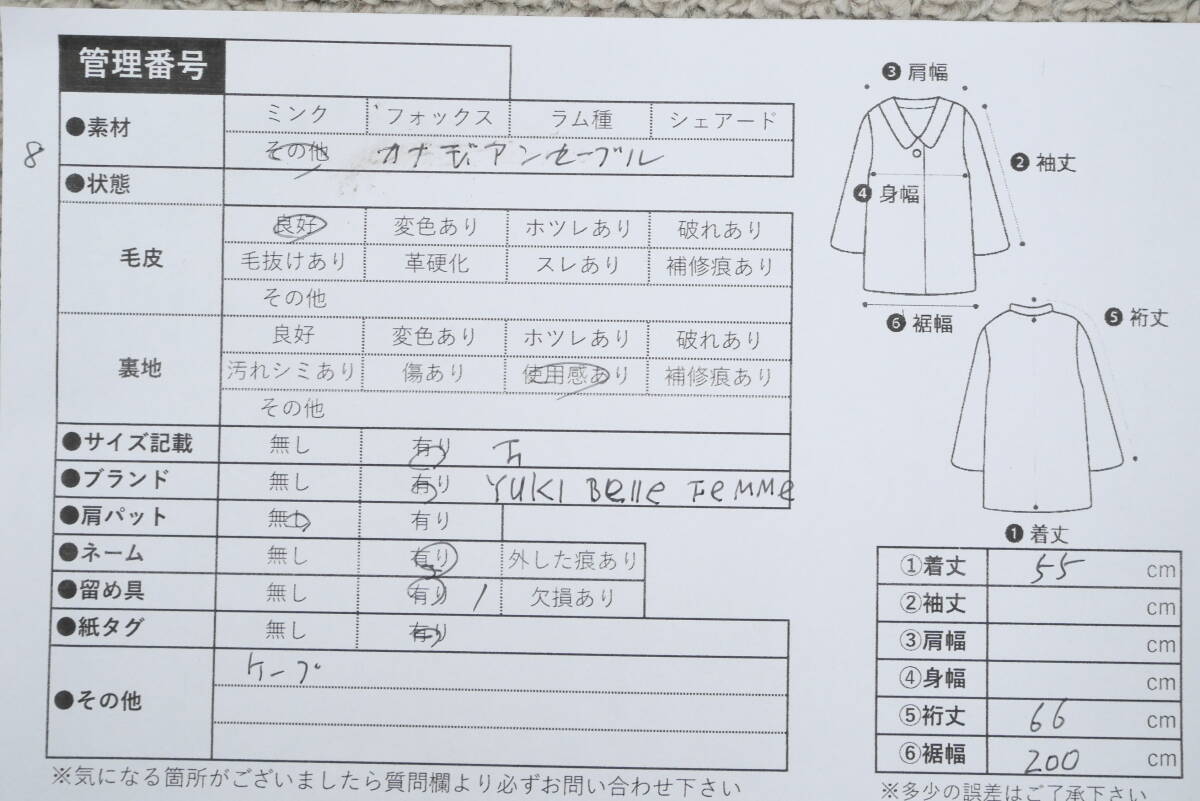 管理番号
●素材 ミンク フォックス ラム種 シェアード
8
その他 カナディアンセーブル
●状態
毛皮 良好 変色あり ホツレあり 破れあり
毛抜けあり 革硬化 スレあり 補修痕あり
その他
裏地 良好 変色あり ホツレあり 破れあり
汚れシミあり 傷あり 使用感あり 補修痕あり
その他
●サイズ記載 無し 有り F
●ブランド 無し 有り YUKI Belle Femme
●肩パット 無し 有り
●ネーム 無し 有り 外した痕あり
●留め具 無し 有り 1 欠損あり
●紙タグ 無し 有り
●その他 ケープ
※気になる箇所がございましたら質問欄より必ずお問い合わせ下さい
❸肩幅
❷袖丈
❹身幅
❻裾幅
❺裄丈
❶着丈
①着丈 55 cm
②袖丈 cm
③肩幅 cm
④身幅 cm
⑤裄丈 66 cm
⑥裾幅 200 cm
※多少の誤差はご了承下さい